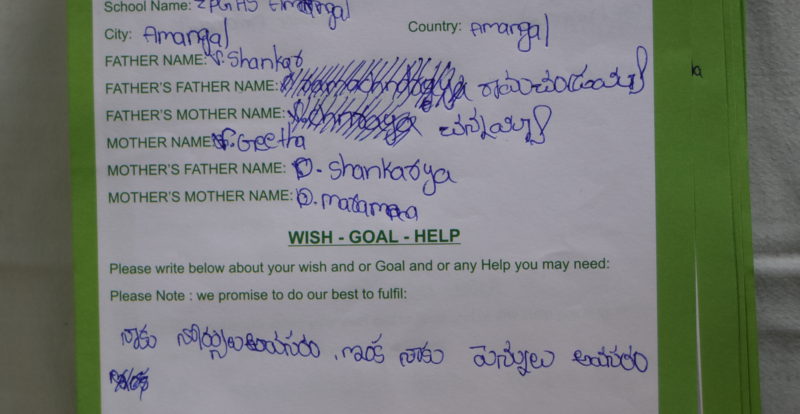 School Name: ZPGHS Amangal
City: Amangal Country: Amangal
FATHER NAME: V. Shankar
FATHER'S FATHER NAME: రామచంద్రయ్య
FATHER'S MOTHER NAME: చెన్నయ్య
MOTHER NAME: V. Geetha
MOTHER'S FATHER NAME: D. Shankarya
MOTHER'S MOTHER NAME: D.
WISH - GOAL - HELP
Please write below about your wish and or Goal and or any Help you may need:
Please Note : we promise to do our best to fulfil:
నాకు నోట్సులు అవసరం. ఇంక నాకు పెన్నులు అవసరం